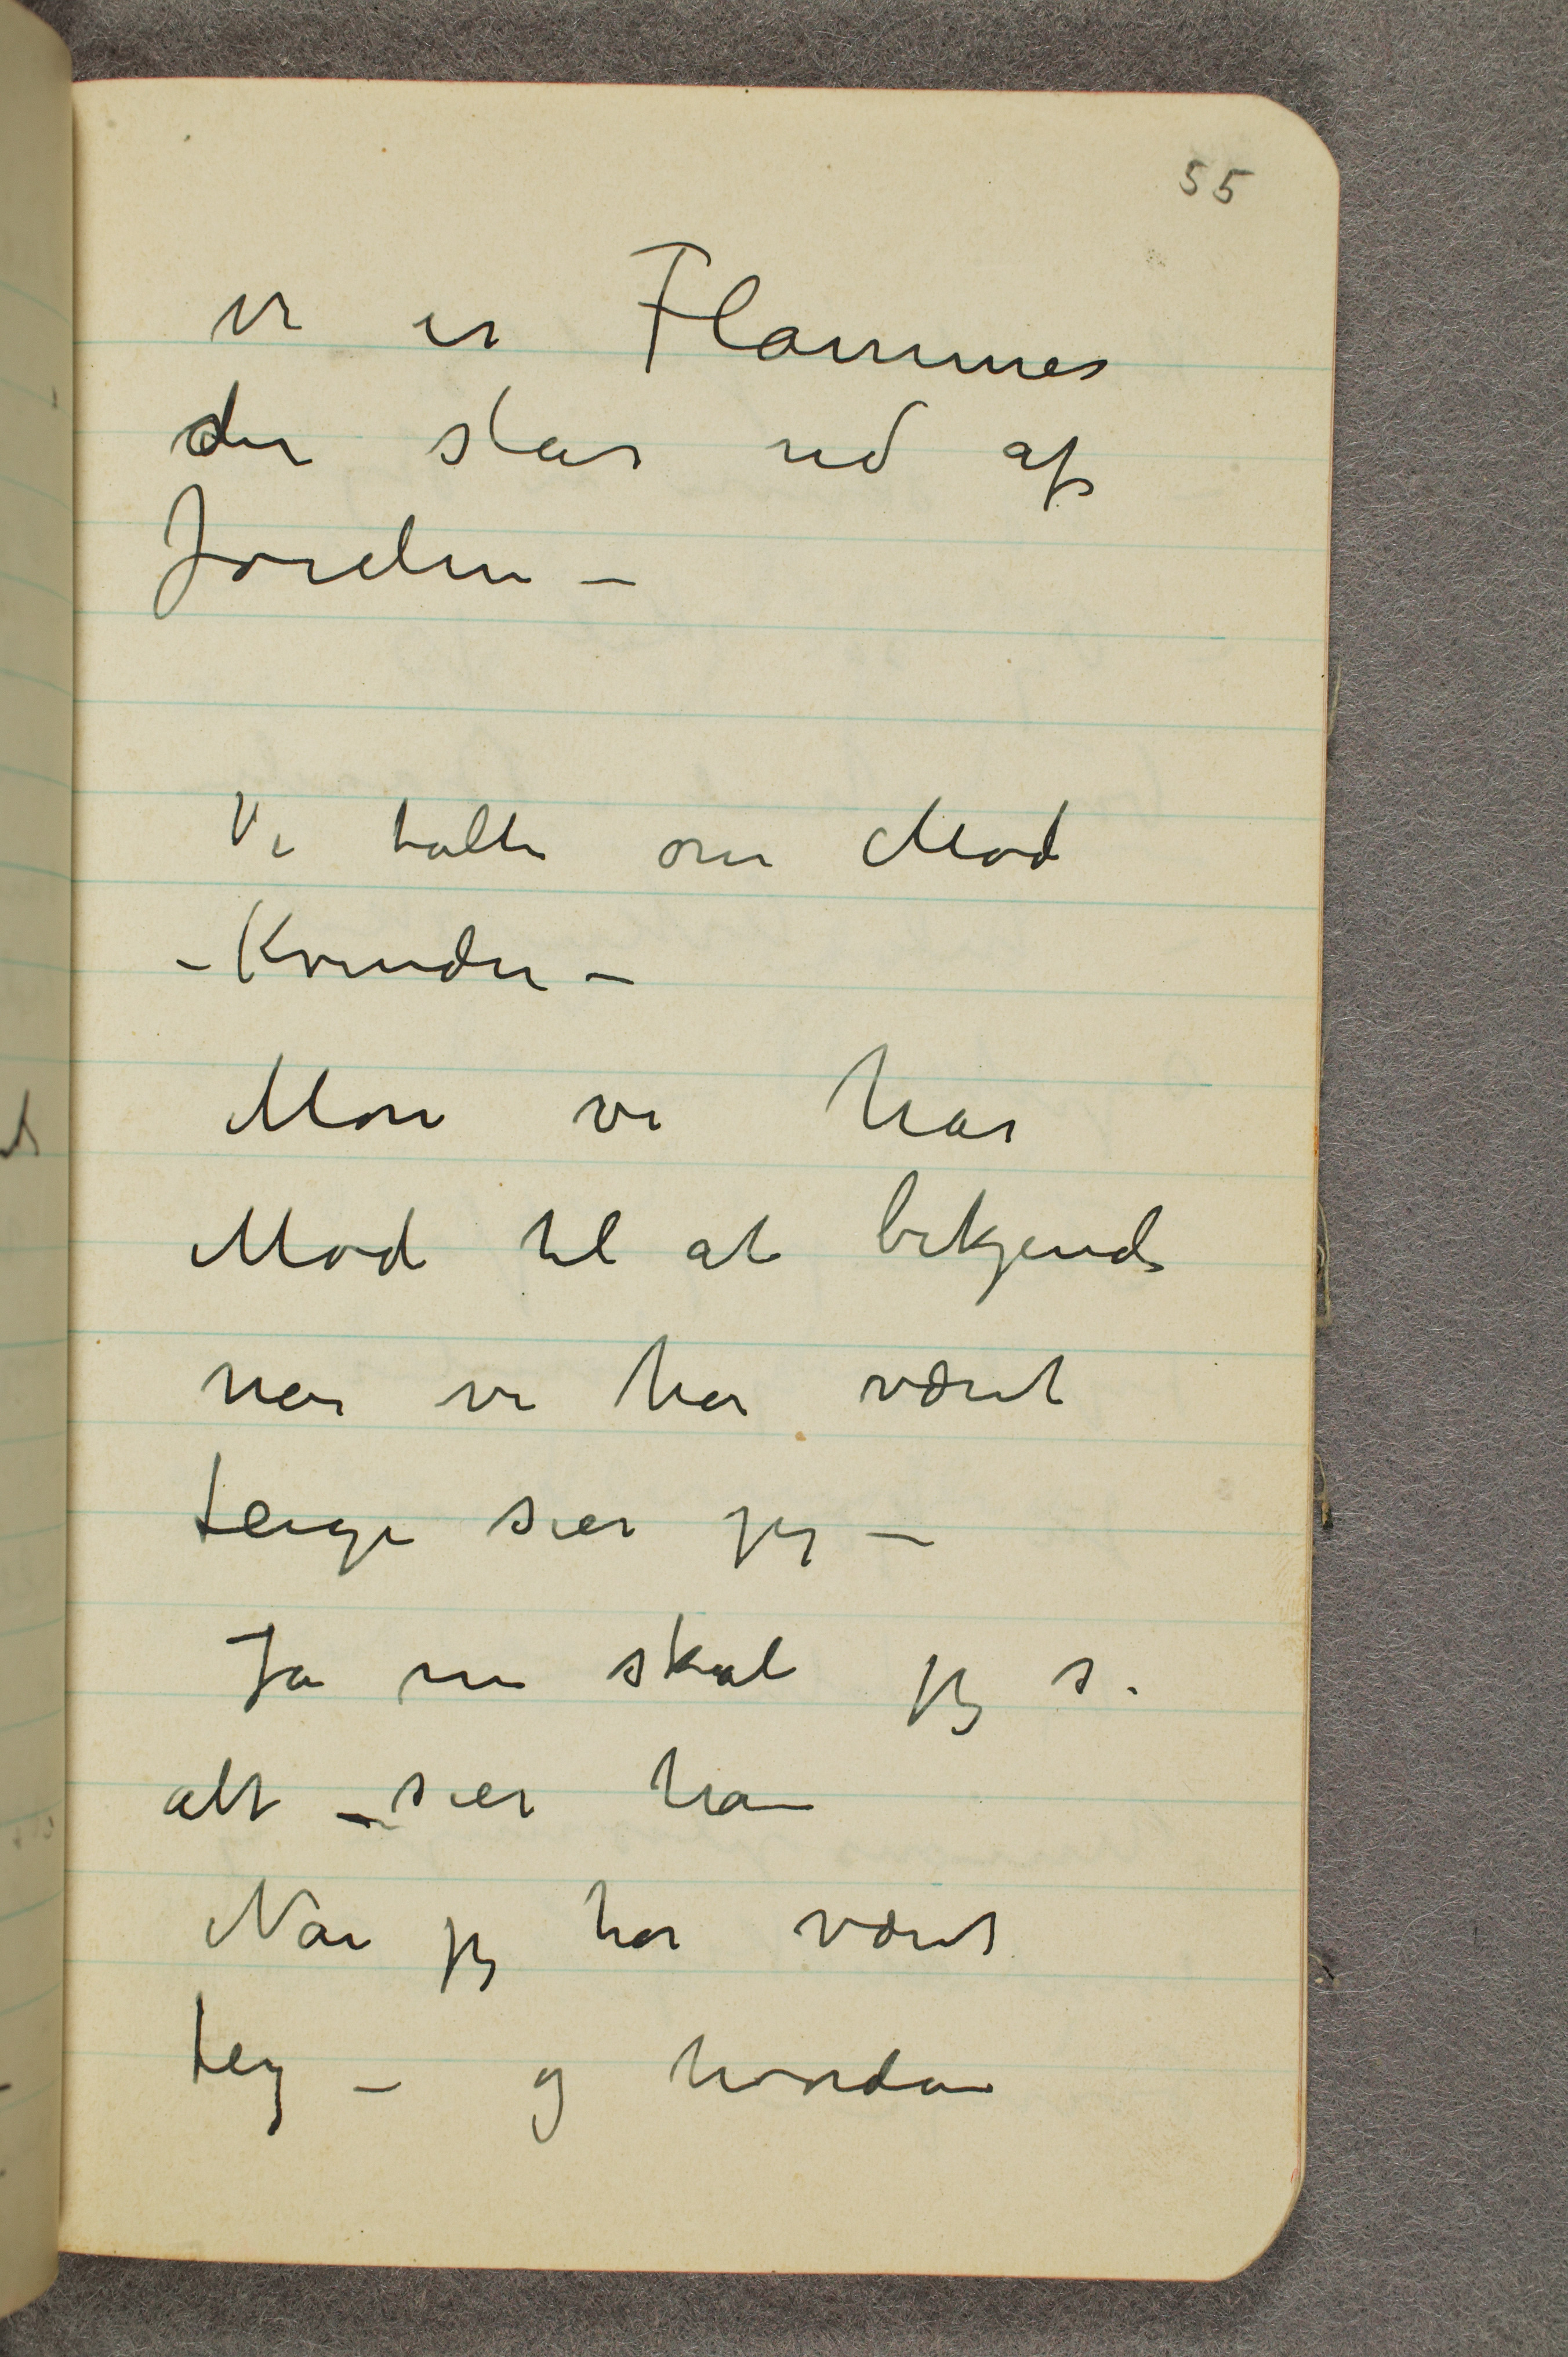 55
vi er Flammer
der slar ud af
Jorden –
Vi talte om Mod
– Kvinder –
Mon vi har
Mod til at bekjende
nar vi har været
feige sier jeg –
Ja nu skal jeg s.
alt – sier han
Nar jeg har været
feig – og hvordan